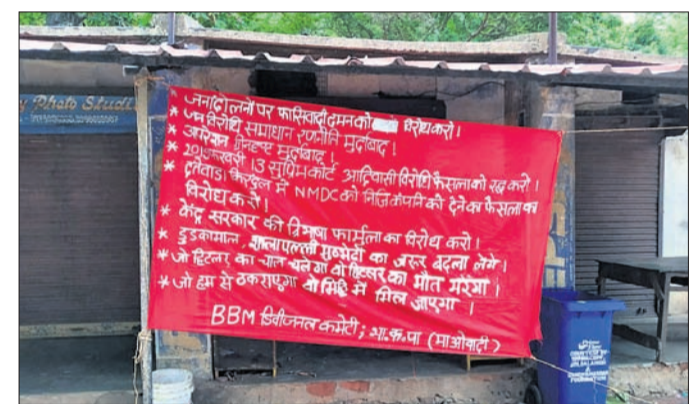 Photo Studi
जनांदोलनों पर फासिवादी दमन को विरोध करो।
* जन विरोधि समाधान रणनीति मुर्दाबाद।
* आपरेसन ग्रीनहंट मुर्दाबाद।
* 2019 फरवरी 13 सुप्रिमकोर्ट आदिवासी विरोधि फैसला को रद्द करो।
* दंतेवाडा किरंदुल में NMDC को निजि कंपनि को देने का फैसला का
विरोध करो।
* केंद्र सरकार की त्रिभाषा फार्मुला का विरोध करो।
* डुडकामाल, शालापल्ली मुठभेटों का जरूर बदला लेंगे।
* जो हिटलर का चाल चलेगा वो हिटलर का मौत मरेगा।
* जो हम से ठकराएगा वो मिट्टि में मिल जाएगा।
BBM डिवीजनल कमेटी; भा.क.पा (माओवादी)